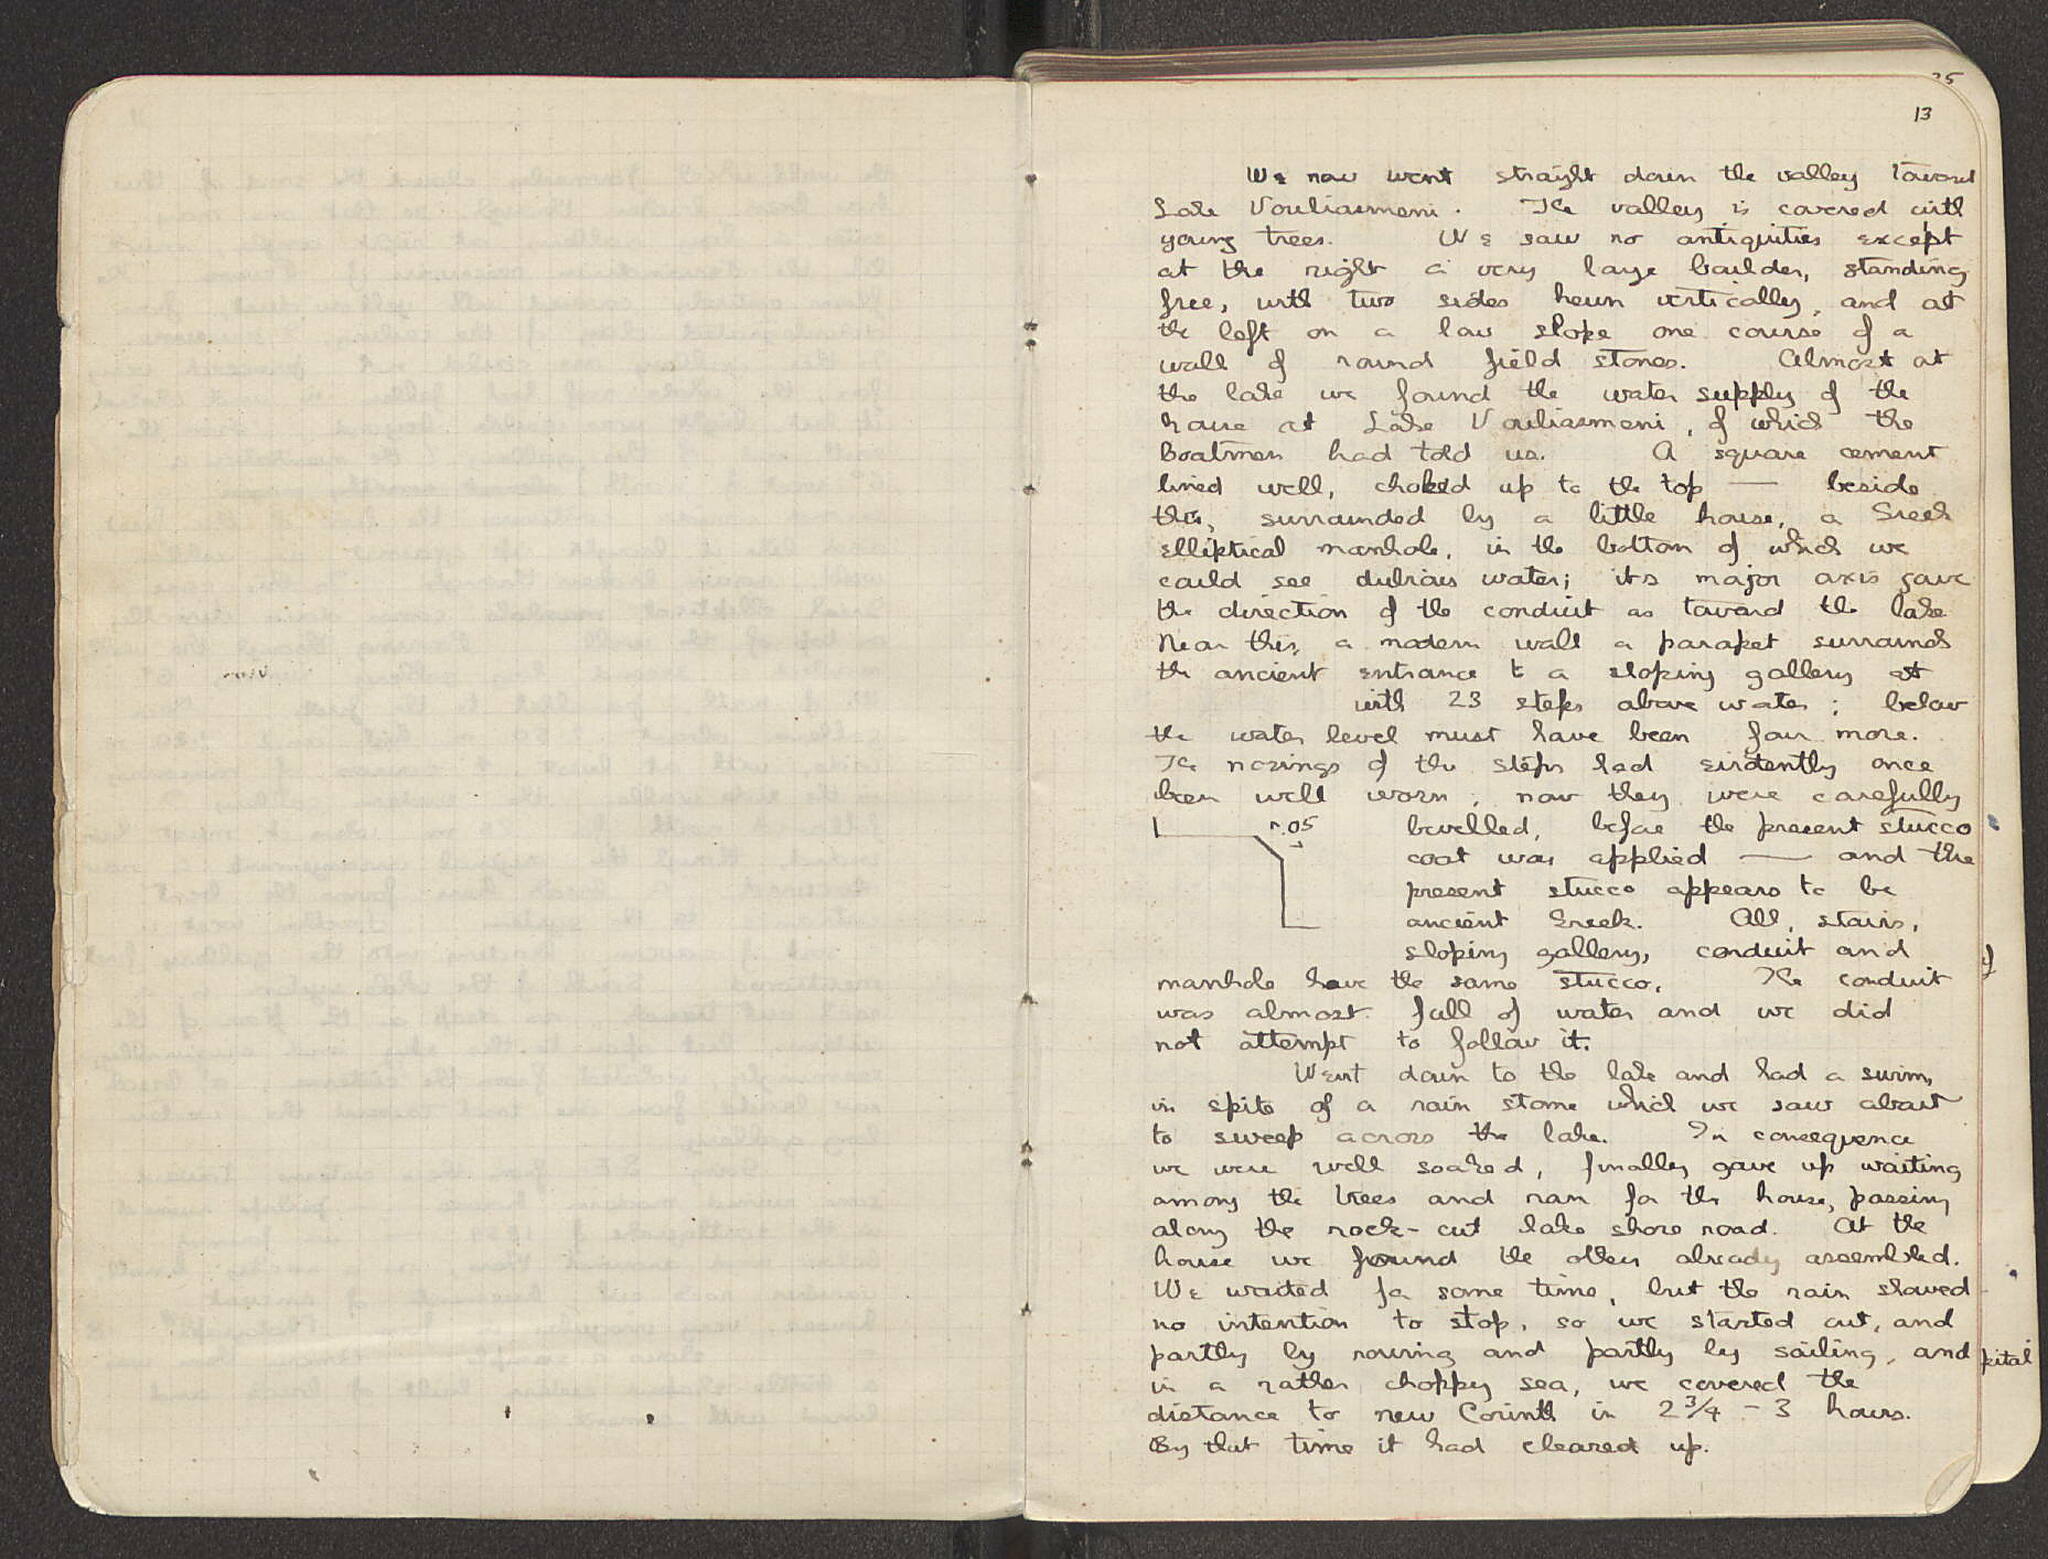 13
We now went straight down the valley toward
Lake Vouliasmeni. The valley is covered with
young trees. We saw no antiquities except
at the right a very large boulder, standing
free, with two sides hewn vertically, and at
the left on a low slope one course of a
wall of round field stones. Almost at
the lake we found the water supply of the
house at Lake Vouliasmeni, of which the
boatmen had told us. A square cement
lined well, choked up to the top — beside
this, surrounded by a little house, a Greek
elliptical manhole, in the bottom of which we
could see dubious water; its major axis gave
the direction of the conduit as toward the lake
Near this, a modern wall a parapet surrounds
the ancient entrance to a sloping gallery at
with 23 steps above water; below
the water level must have been four more.
The nosings of the steps had evidently once
been well worn; now they were carefully
r.05 bevelled, before the present stucco
coat was applied — and the
present stucco appears to be
ancient Greek. All, stairs,
sloping gallery, conduit and
manhole have the same stucco. The conduit
was almost full of water and we did
not attempt to follow it.
Went down to the lake and had a swim,
in spite of a rain storme which we saw about
to sweep across the lake. In consequence
we were well soaked, finally gave up waiting
among the trees and ran for the house, passing
along the rock-cut lake shore road. At the
house we found the others already assembled.
We waited for some time, but the rain showed
no intention to stop, so we started out, and
partly by rowing and partly by sailing, and
in a rather choppy sea, we covered the
distance to new Corinth in 2 3/4 - 3 hours.
By that time it had cleared up.